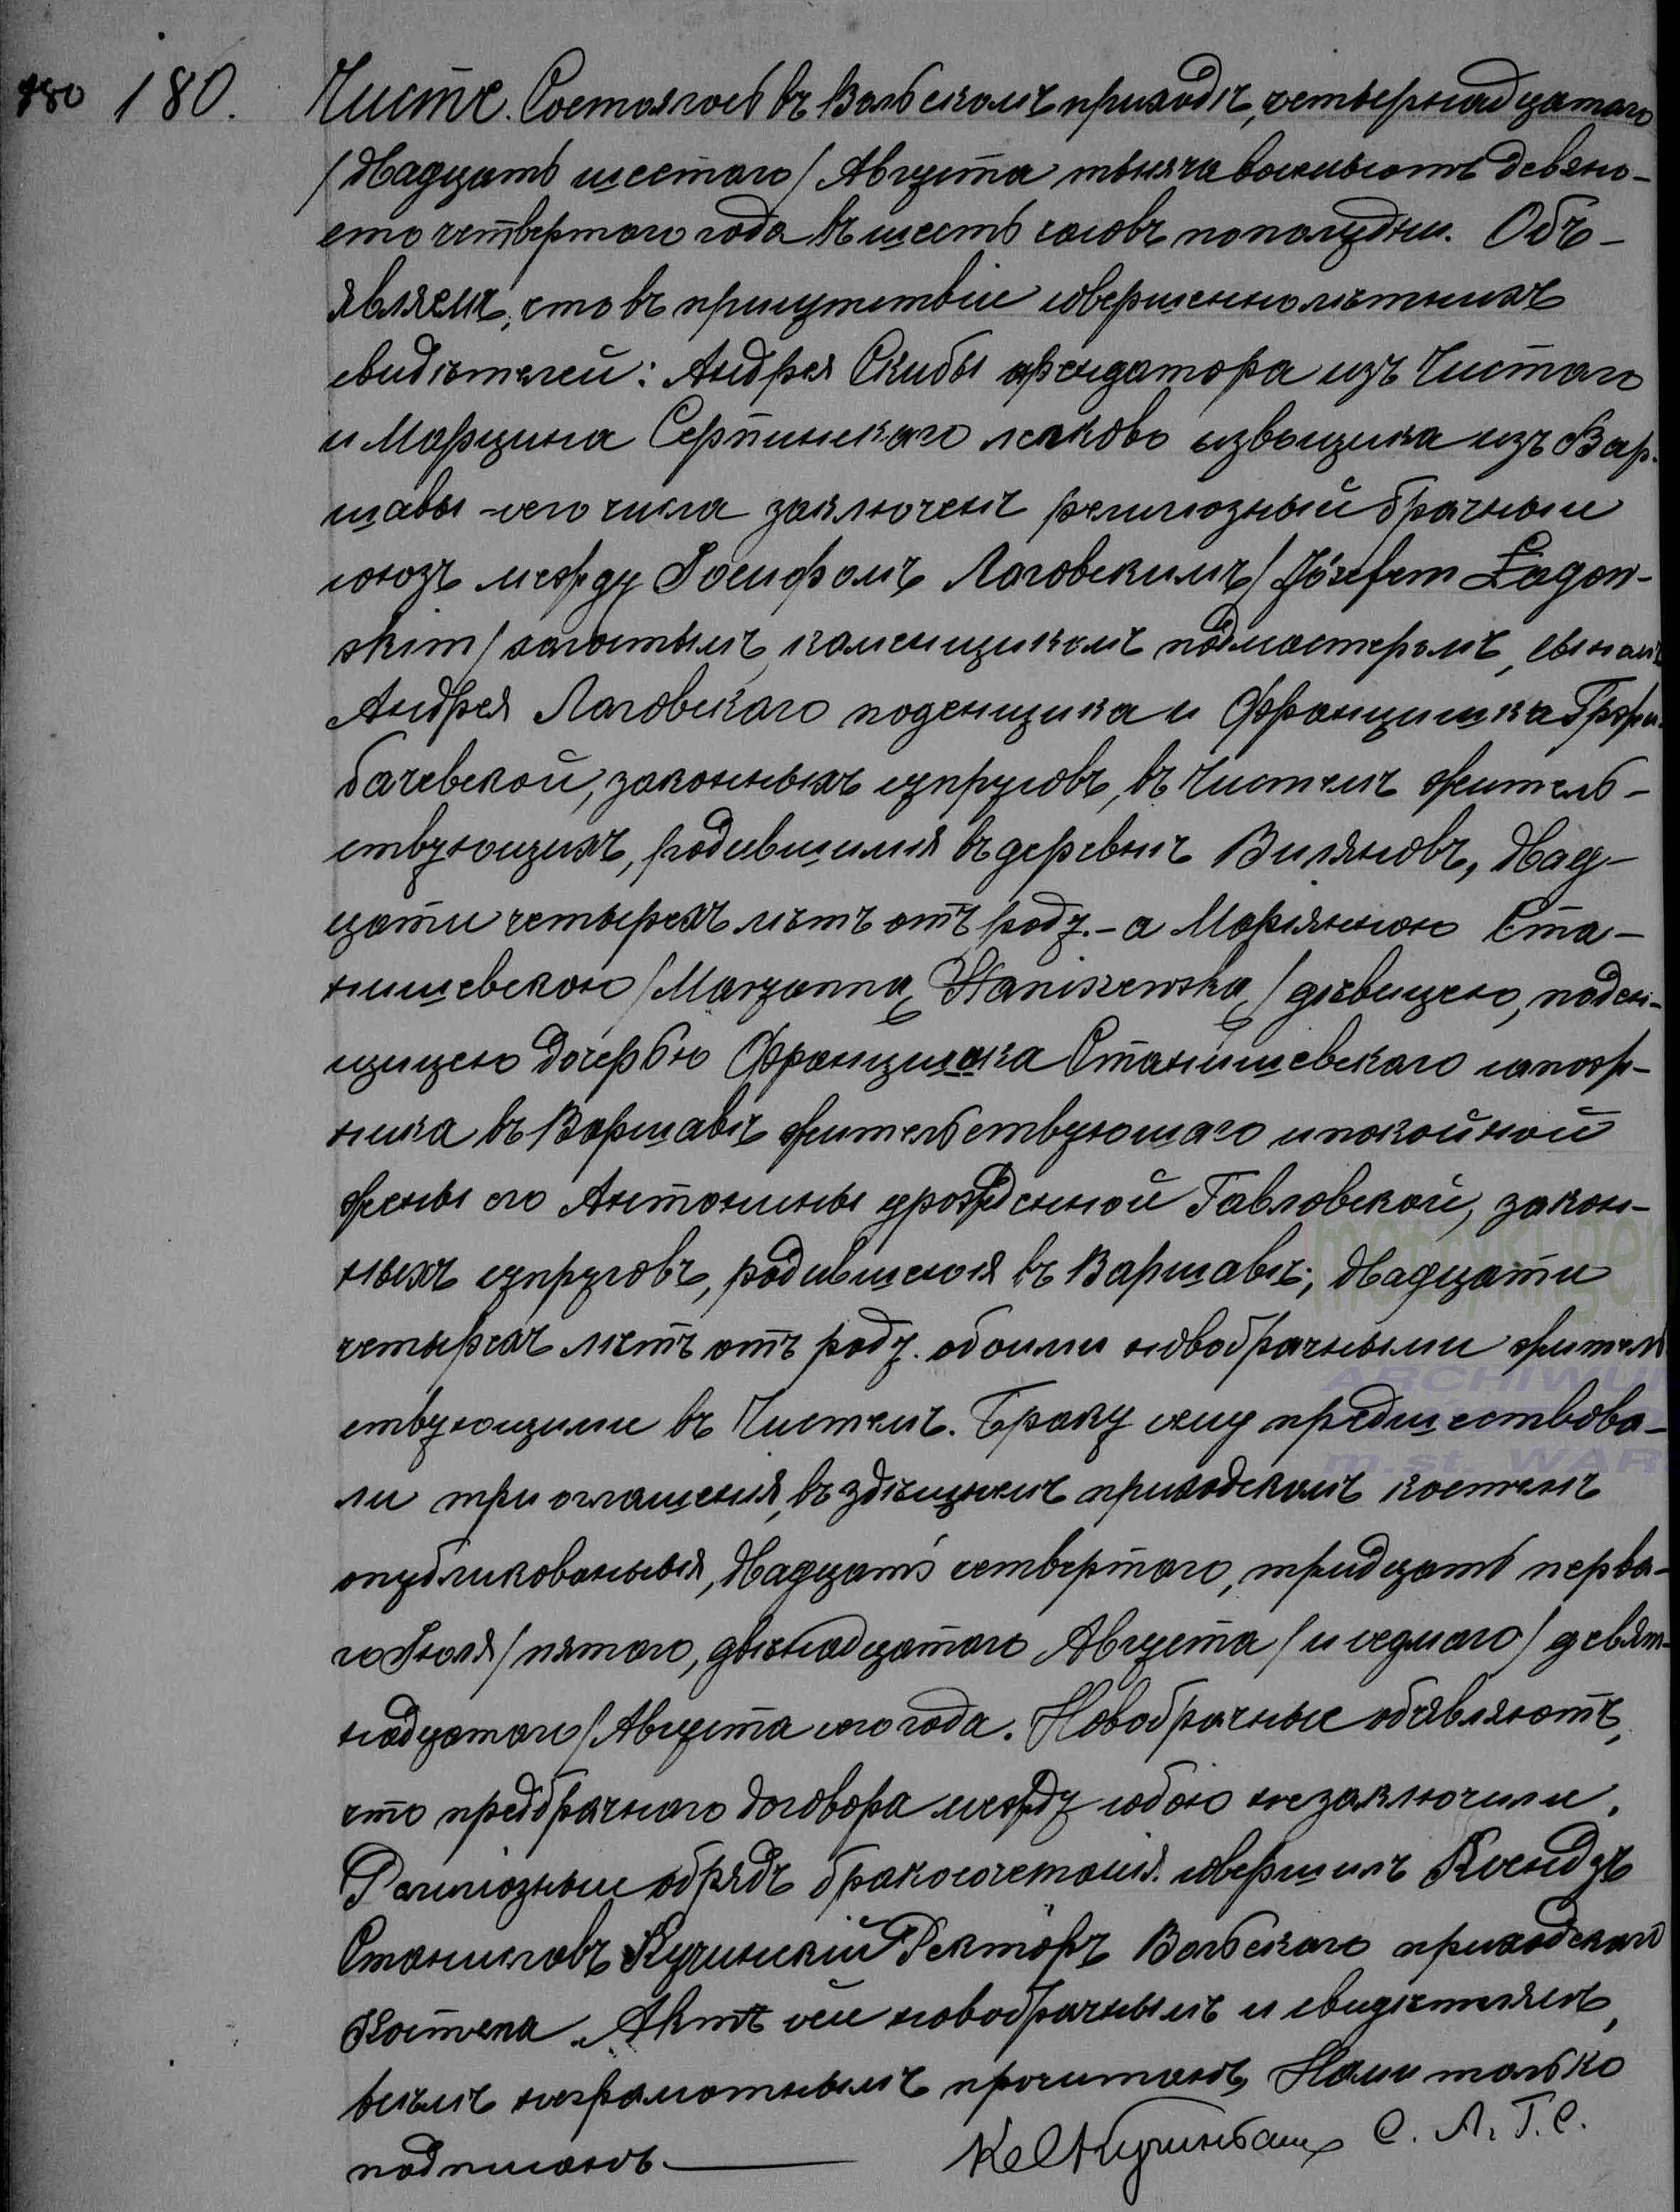 180 180. Чисте. Состоялось въ Вольскомъ приходѣ, четырнадцатаго
/двадцать шестаго/ Августа тысяча восемьсотъ девяно-
сто четвертаго года въ шесть часовъ пополудни. Объ-
являемъ, что въ присутствіи совершеннолѣтнихъ
свидѣтелей: Андрея Скибы арендатора изъ Чистаго
и Марцина Серпинскаго легковo извощика изъ Вар-
шавы сего числа заключенъ религіозный брачный
союзъ между Іосифомъ Лаговскимъ /Józefem Łagow-
skim/ холостымъ, каменщикомъ подмастеромъ, сыномъ
Андрея Лаговскаго поденщика и Францишка
бачевской, законныхъ супруговъ, въ Чистемъ житель-
ствующихъ, родившимся въ деревнѣ Виляновъ, двад-
цати четырехъ лѣтъ отъ роду. - а Маріанною Ста-
нишевскою /Maryanną Staniszewską/ дѣвицею, поден-
щицею дочерью Францишка Станишевскаго сапож-
ника въ Варшавѣ жительствующаго и покойной
жены его Антонины урожденной Гавловской, закон-
ныхъ супруговъ, родившеюся въ Варшавѣ, двадцати
четырехъ лѣтъ отъ роду. обоими новобрачными житель-
ствующими въ Чистемъ. Браку сему предшествова-
ли три оглашенія, въ здѣшнемъ приходскомъ костелѣ
опубликованныя, двадцать четвертаго, тридцать перва-
го Іюля /пятаго, двѣнадцатаго Августа/ и седмаго /девят-
надцатаго/ Августа сего года. Новобрачные объявляютъ,
что предбрачнаго договора между собою незаключили.
Религіозный обрядъ бракосочетанія совершилъ Ксендзъ
Станиславъ Кучинскій Ректоръ Вольскаго приходскаго
Костела. Актъ сей новобрачнымъ и свидѣтелямъ,
всѣмъ неграмотнымъ прочитанъ, Нами только
подписанъ. С. А. Г. С.
metryki.gen
ARCHIWUM
m.st. WAR